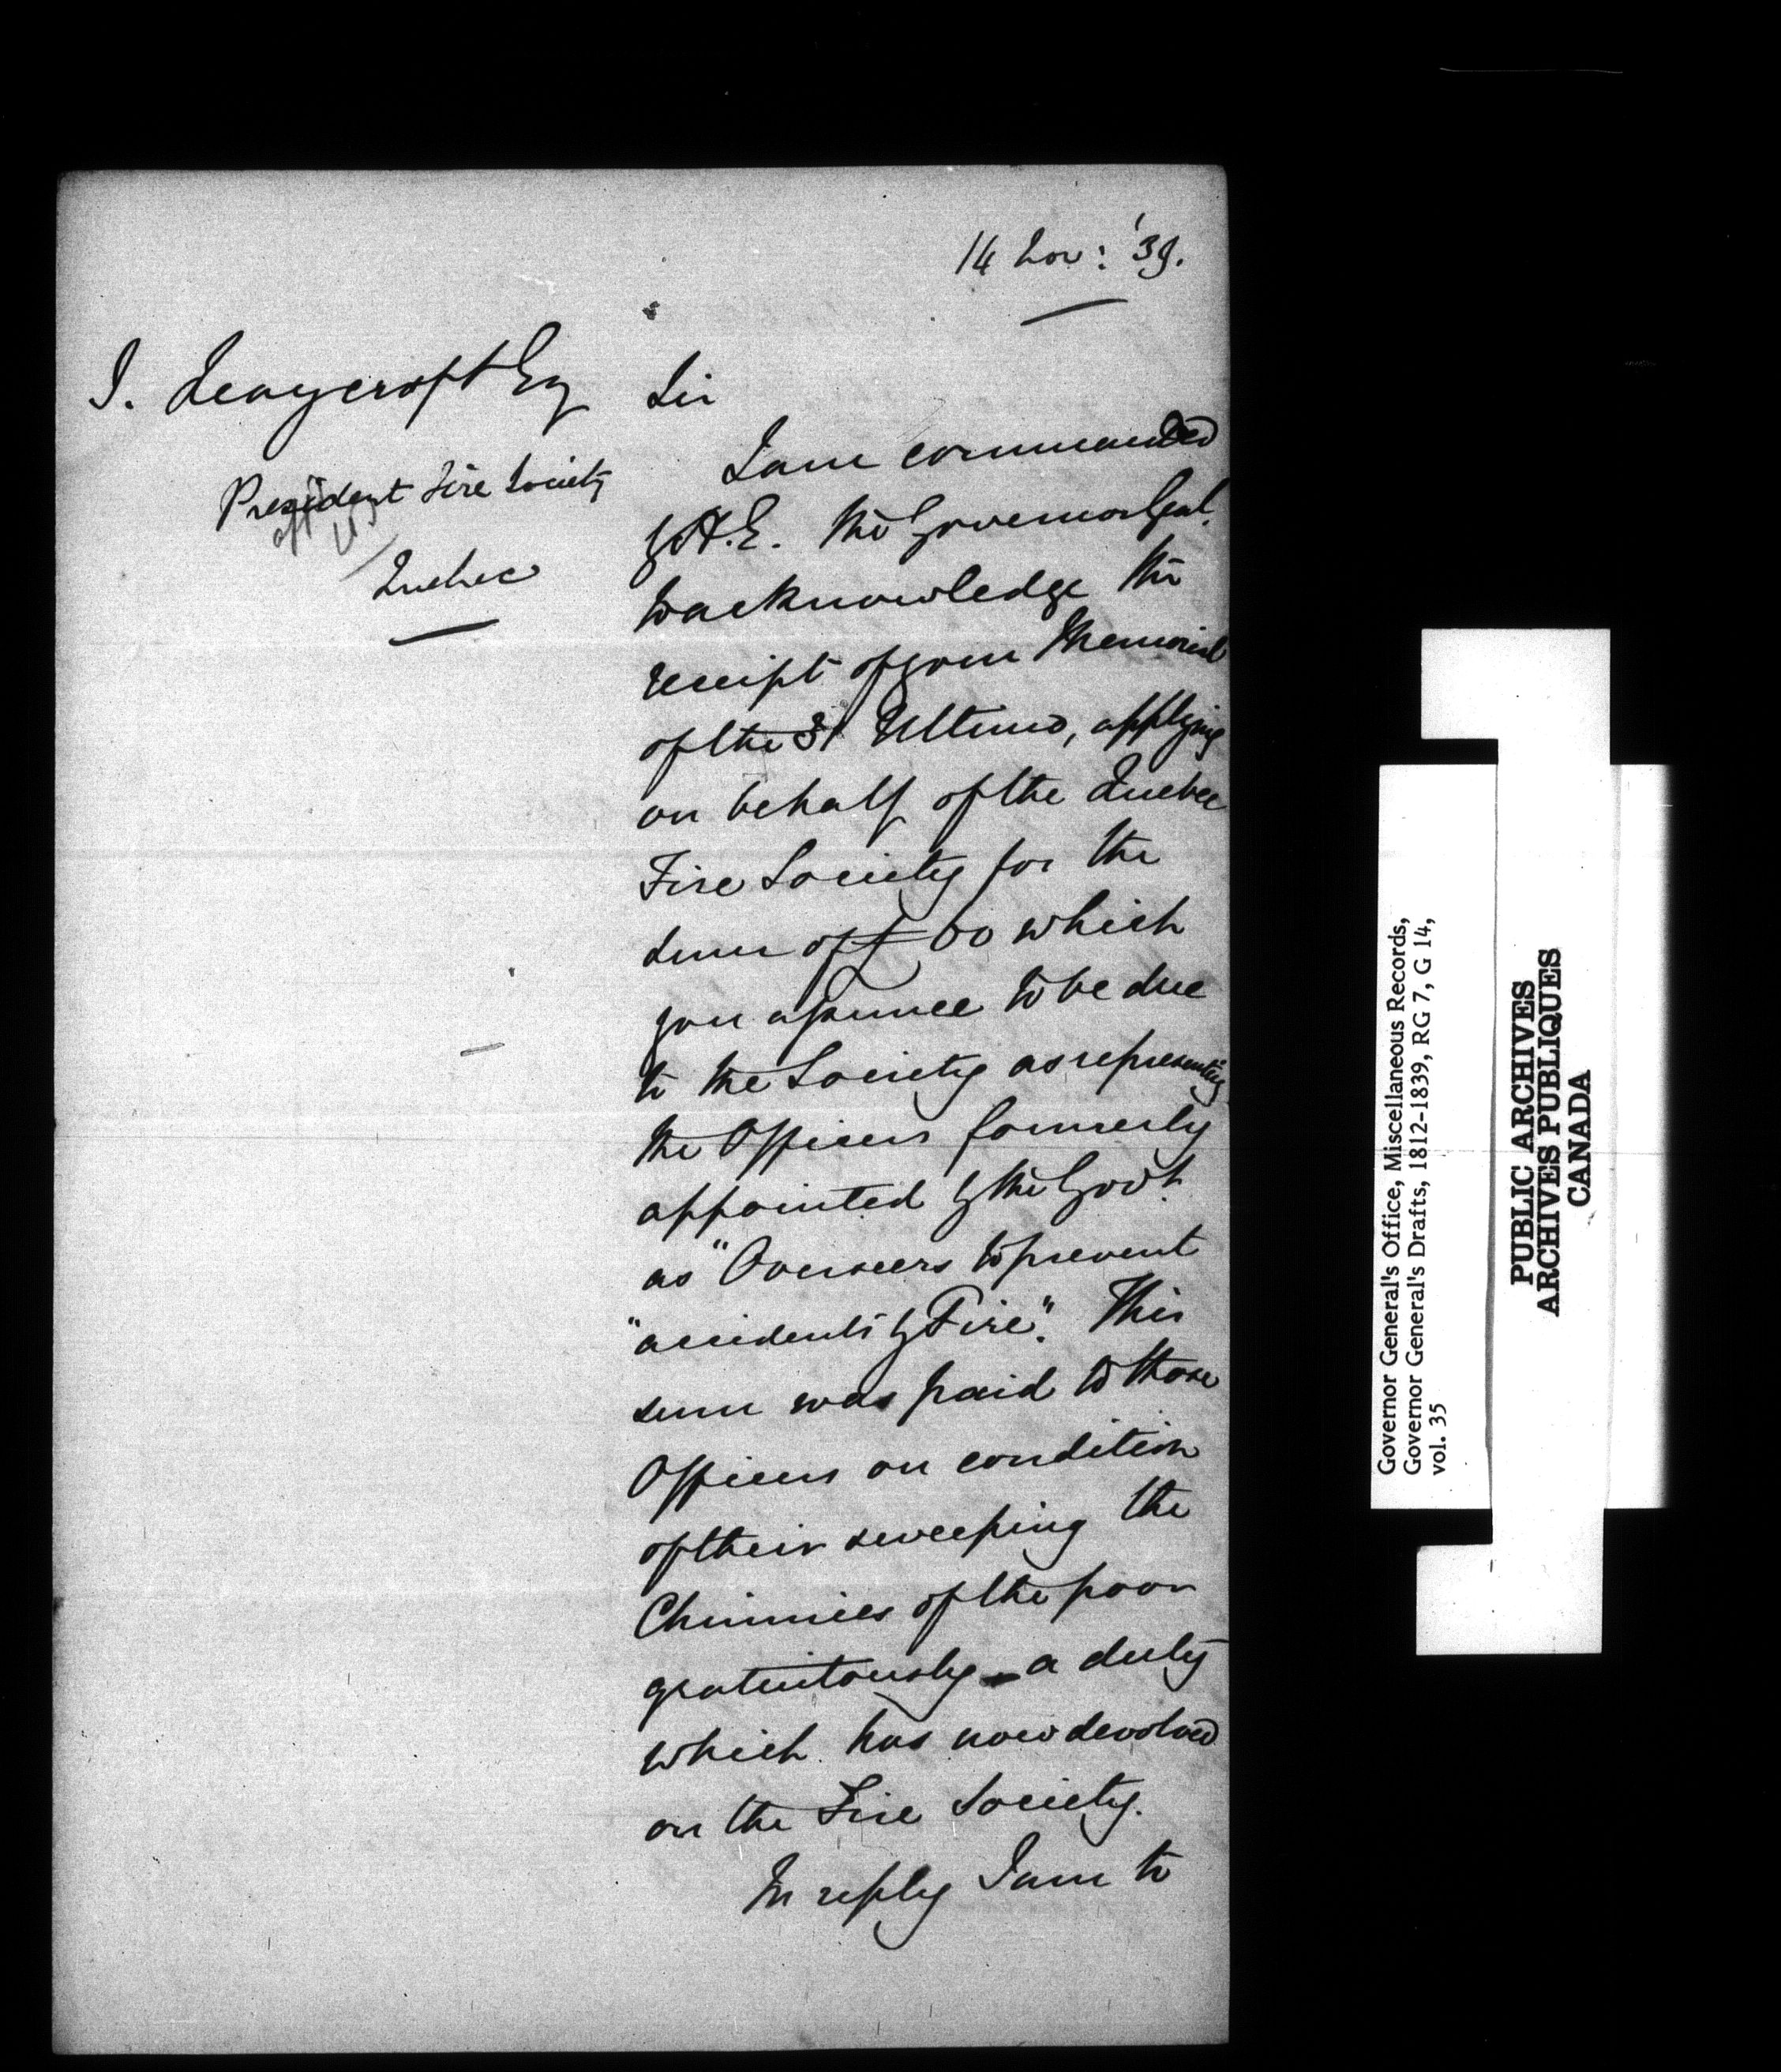 14 Nov: '39.
J. Leaycroft Esq
President Fire Society
Quebec
Sir
I am commanded
by H.E. the Governor Genl.
to acknowledge the
receipt of your Memorial
of the 31 Ultimo, applying
on behalf of the Quebec
Fire Society for the
sum of £ 60 which
you assume to be due
to the Society as representing
the Officers formerly
appointed by the Govt.
as "Overseers to prevent
"accidents by Fire". This
sum was paid to those
Officers on condition
of their sweeping the
Chimnies of the poor
gratuitously – a duty
which has now devolved
on the Fire Society.
In reply I am to
Governor General's Office, Miscellaneous Records,
Governor General's Drafts, 1812-1839, RG 7, G 14,
vol. 35
PUBLIC ARCHIVES
ARCHIVES PUBLIQUES
CANADA